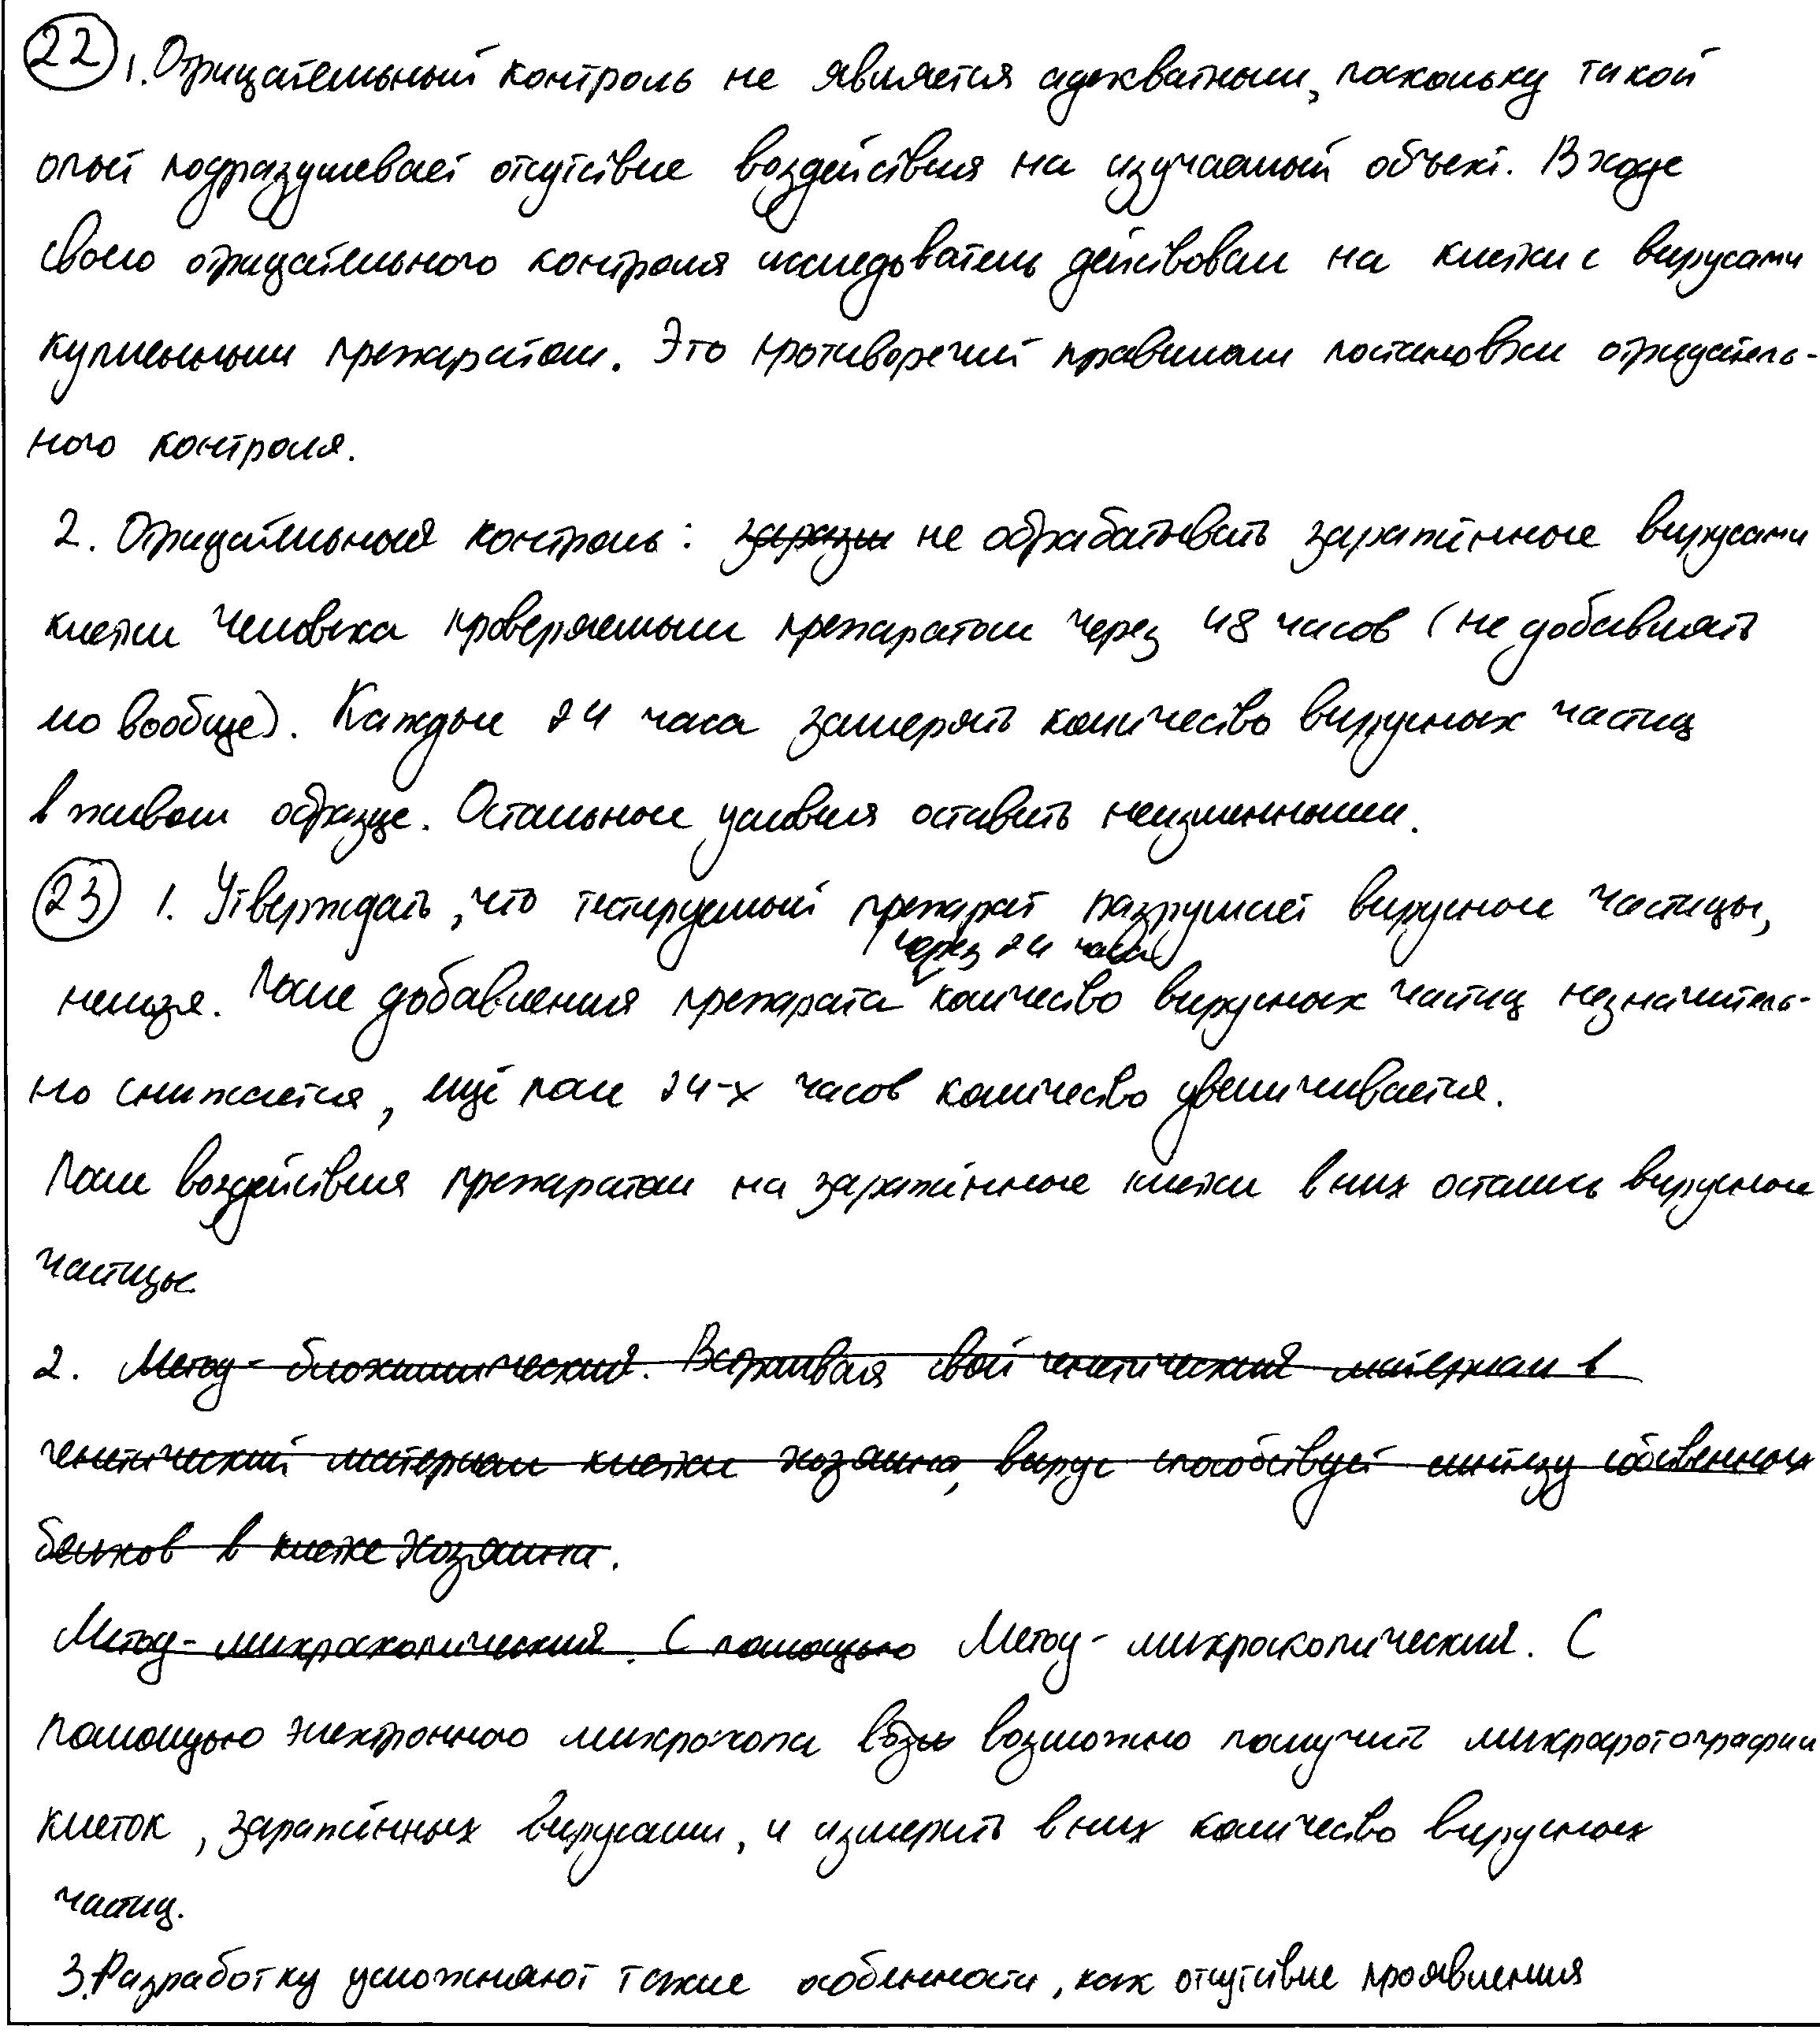 22 1. Отрицательный контроль не является адекватным, поскольку такой
опыт подразумевает отсутствие воздействия на изучаемый объект. В ходе
своего отрицательного контроля исследователь действовал на клетки с вирусами
купленным препаратом. Это противоречит правилам постановки отрицатель-
ного контроля.
2. Отрицательный контроль: зараzы не обрабатывать заражённые вирусами
клетки человека проверяемым препаратом через 48 часов (не добавлять
его вообще). Каждые 24 часа замерять количество вирусных частиц
в живом образце. Остальные условия оставить неизменными.
23 1. Утверждать, что тестируемый препарат разрушает вирусные частицы,
через 24 часа
нельзя. После добавления препарата количество вирусных частиц незначитель-
но снижается, ещё после 24-х часов количество увеличивается.
После воздействия препаратом на заражённые клетки в них остались вирусные
частицы.
2. Метод - биохимический. Встраивая свой генетический материал в
генетический материал клетки хозяина, вирус способствует синтезу собственных
белков в клетке хозяина.
Метод - микроскопический. С помощью Метод - микроскопический. С
помощью электронного микроскопа возможно получить микрофотографии
клеток, заражённых вирусами, и измерить в них количество вирусных
частиц.
3. Разработку усложняют такие особенности, как отсутствие проявления